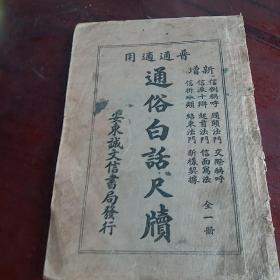 普通適用
新增
信例稱呼 題頭法門 交際稱呼
信派十辯 起首法門 信面寫法
信排冰頰 結束法門 新樣契據
全一冊
通俗白話尺牘
安東誠文信書局發行